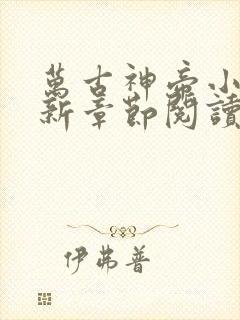 萬古神帝小
新章節閱讀
伊弗普